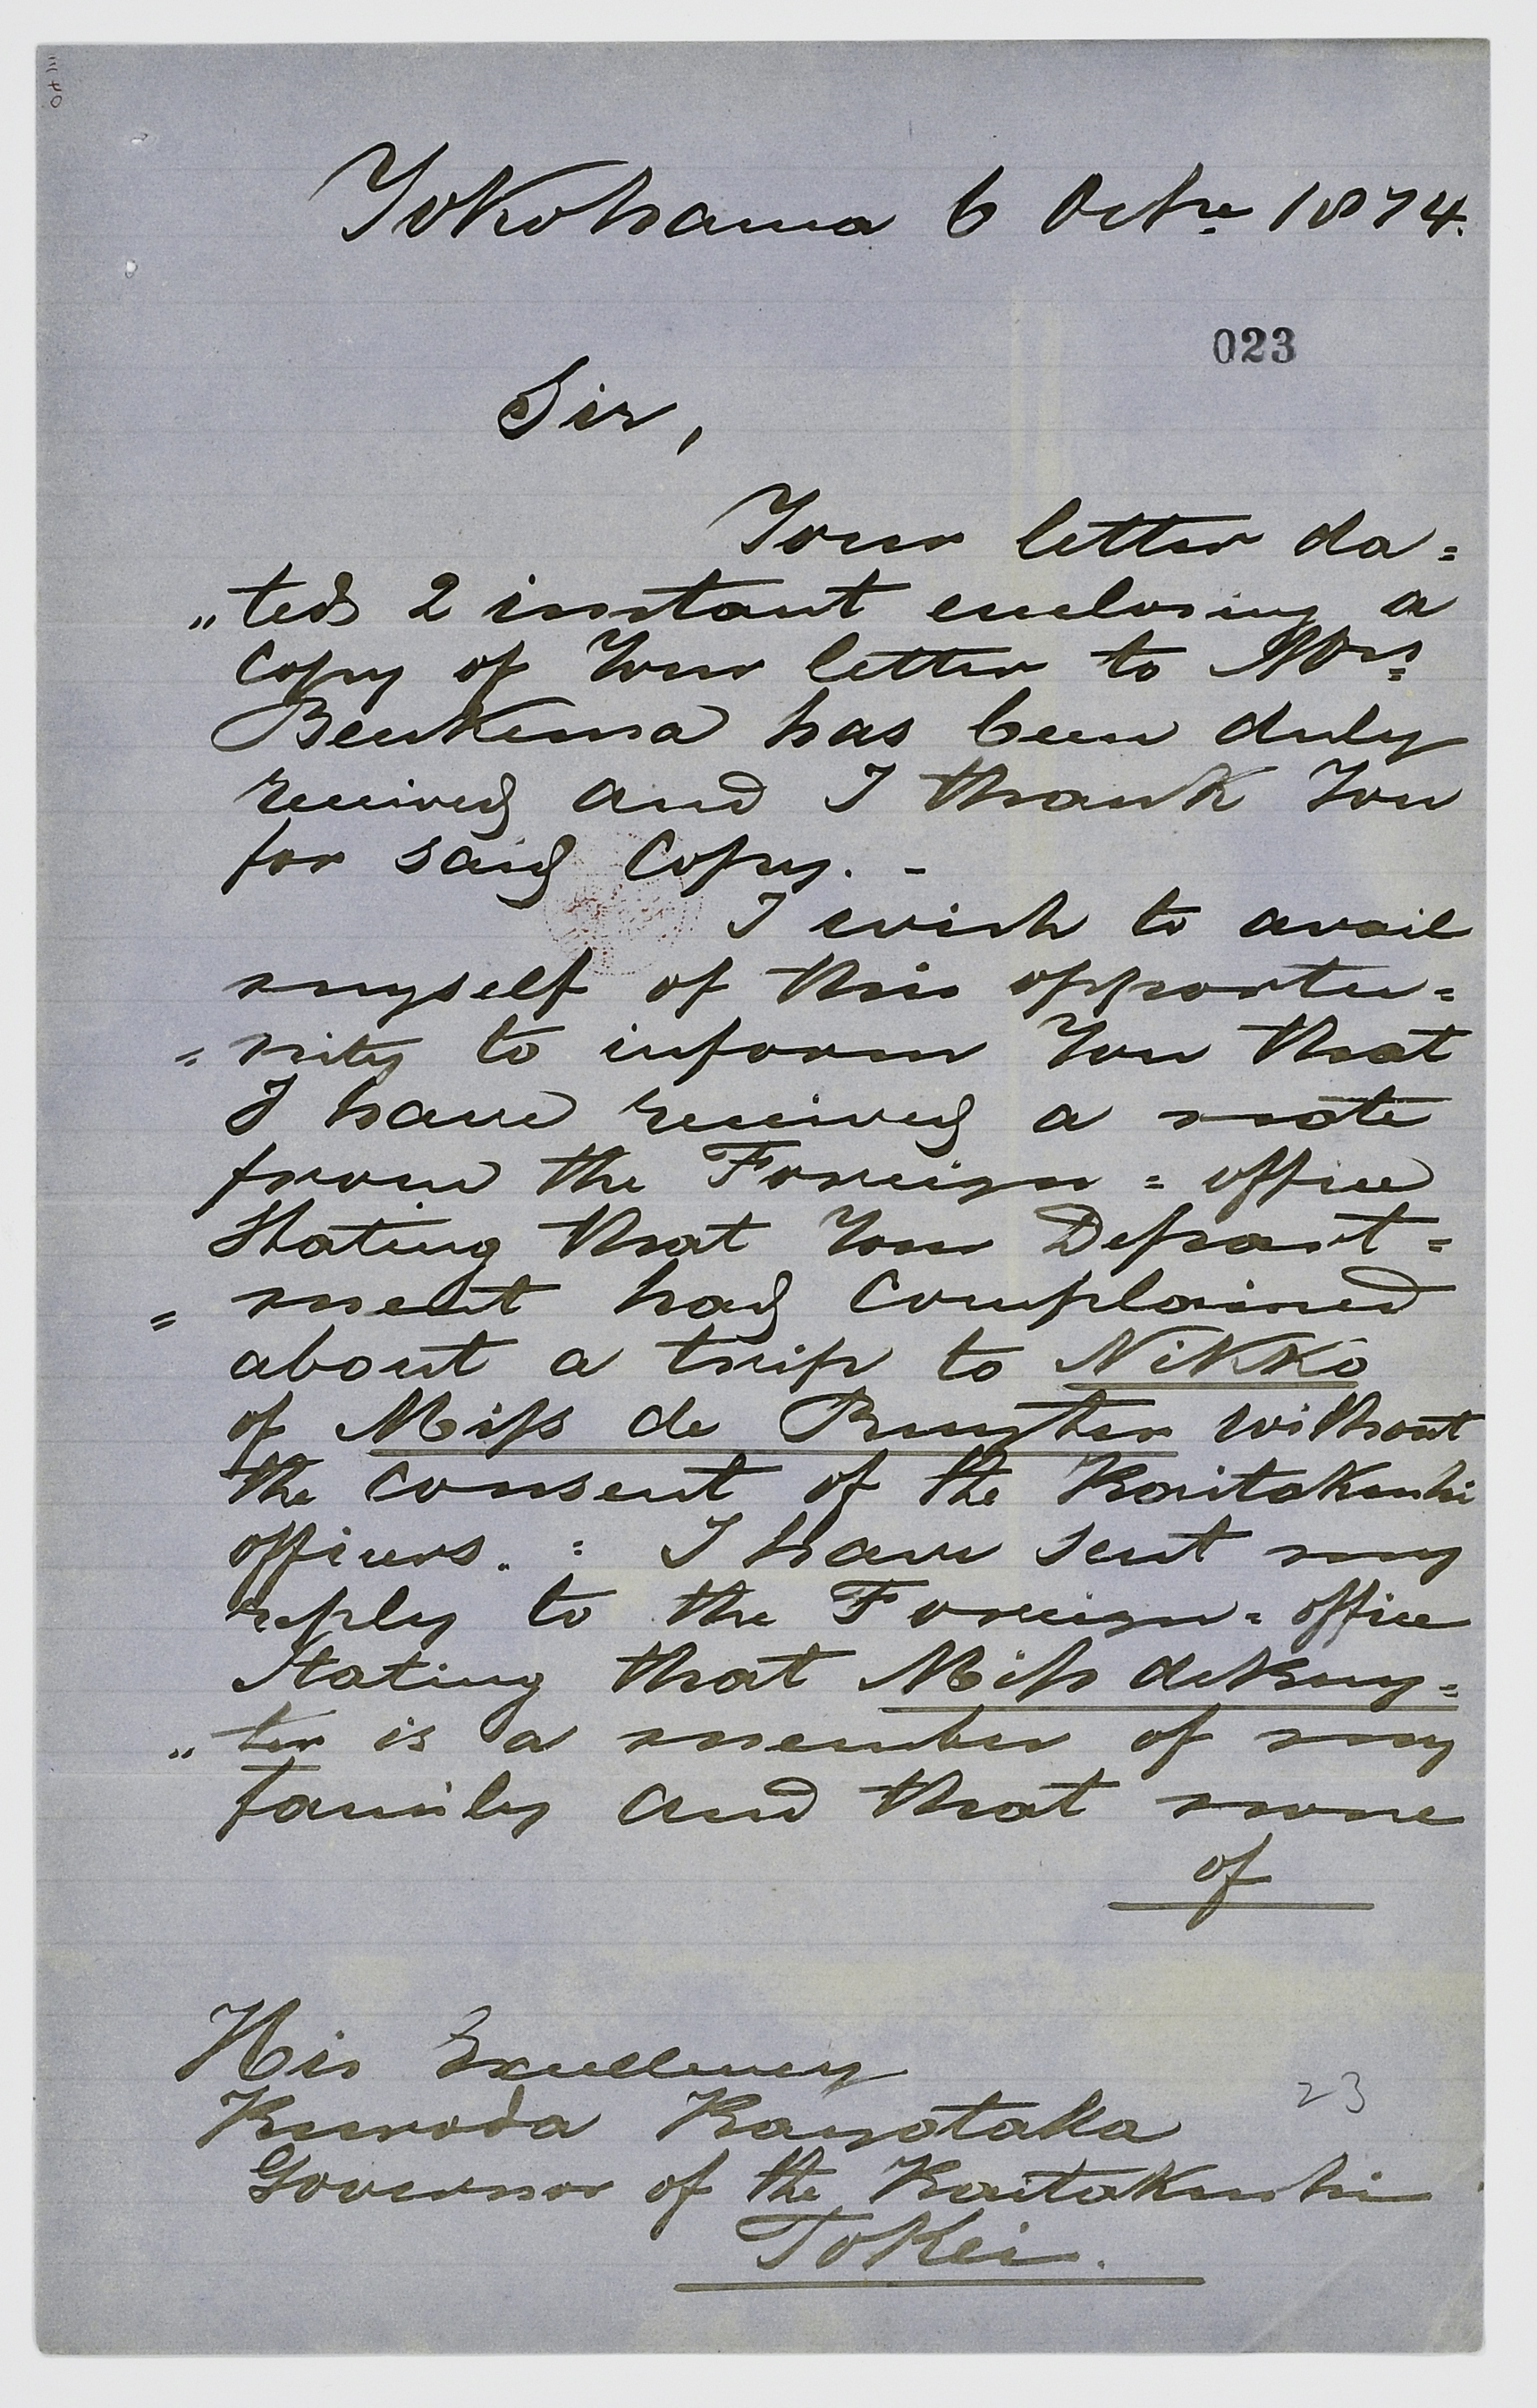 Yokohama 6 Octre 1874.
023
Sir,
Your letter da=
"ted 2 instant enclosing a
Copy of Your letter to Mrs
Beukema has been duly
received and I thank You
for said Copy. -
I wish to avail
myself of this opportu=
=nity to inform You that
I have received a note
from the Foreign=office
Stating that Your Depart=
=ment had Complained
about a trip to Nikko
of Miss de Ruyter without
the consent of the Kaitakushi
officers. = I have sent my
reply to the Foreign=office
Stating that Miss de Ruy=
"ter is a member of my
family and that none
of
His Excellency
Kuroda Kayotaka
23
Governor of the Kaitakushi
Tokei.